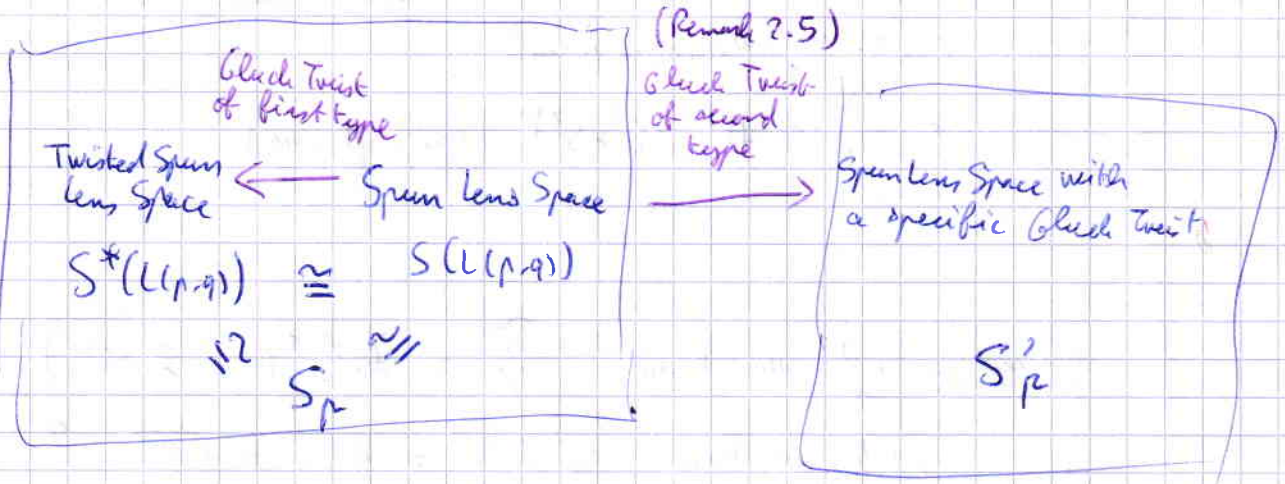 (Remark 2.5)
Gluck Twist
of first type
Gluck Twist
of second
type
Twisted Spun
Lens Space
Spun Lens Space
Spun Lens Space with
a specific Gluck Twist
S*(L(p,q)) ≅ S(L(p,q))
≅ ≅
S_p
S'_p